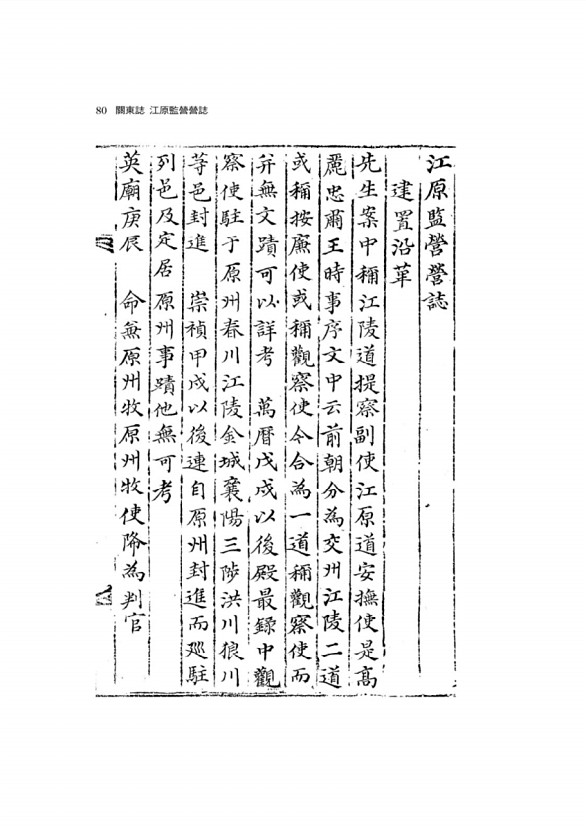 80 關東誌 江原監營營誌
江原監營營誌
建置沿革
先生案中稱江陵道提察副使江原道安撫使是髙
麗忠肅王時事序文中云前朝分為交州江陵二道
或稱按廉使或稱觀察使今合為一道稱觀察使而
并無文蹟可以詳考 萬曆戊戌以後殿最錄中觀
察使駐于原州春川江陵金城襄陽三陟洪川狼川
等邑封進 崇禎甲戌以後連自原州封進而廵駐
列邑及定居原州事蹟他無可考
英廟庚辰 命兼原州牧原州牧使降為判官